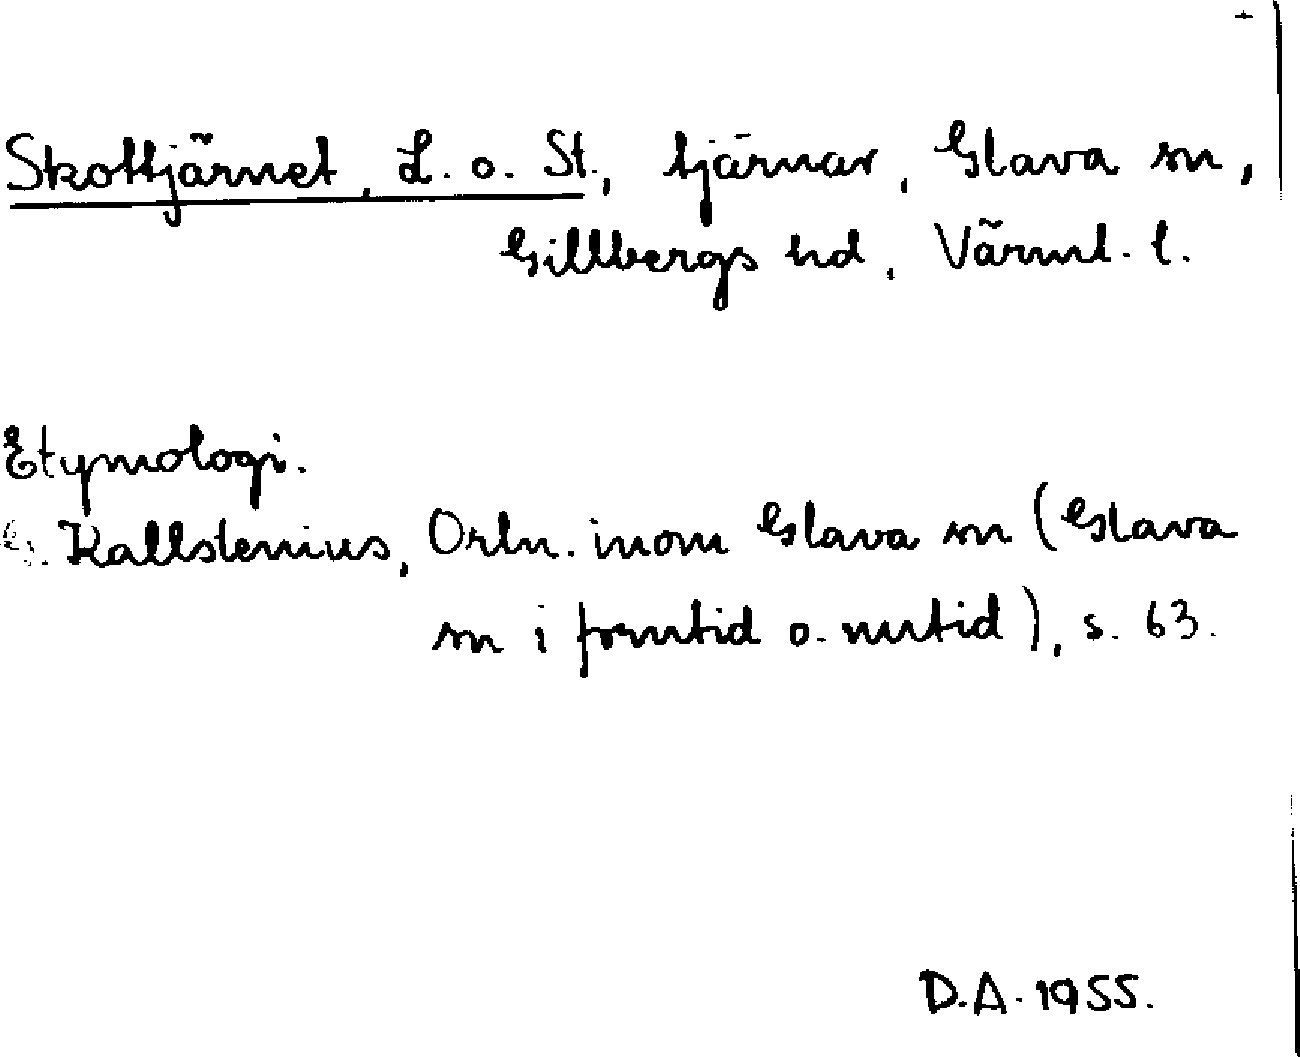 Skottjärnet, L. o. St., tjärnar, Glava sn,
Gillbergs hd, Värml. l.
Etymologi.
Kallstenius, Ortn. inom Glava sn (Glava
sn i forntid o. nutid), s. 63.
D.A. 1955.